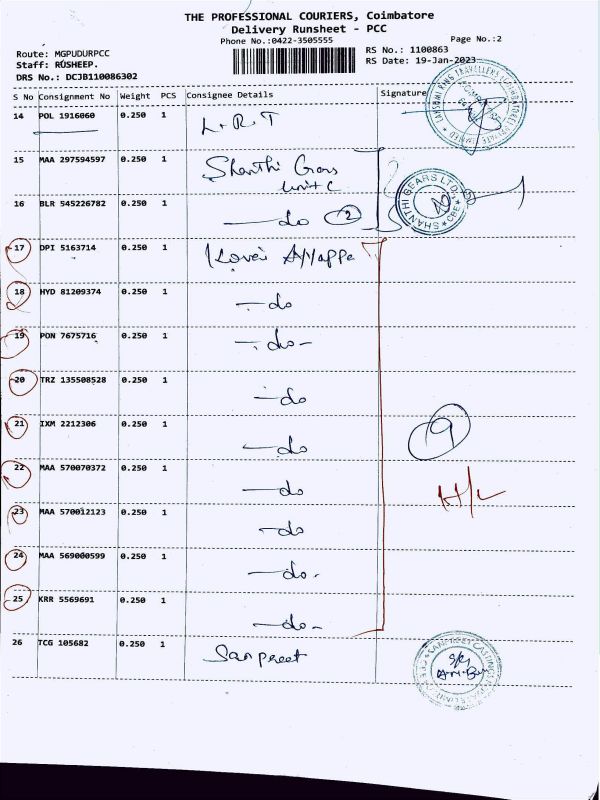 THE PROFESSIONAL COURIERS, Coimbatore
Delivery Runsheet - PCC
Phone No.:0422-3505555
Page No.:2
Route: MGPUDURPCC
RS No.: 1100863
Staff: RUSHEEP.
RS Date: 19-Jan-2023
DRS No.: DCJB110086302
S No Consignment No Weight PCS Consignee Details Signature
14 POL 1916060 0.250 1 L.R.T
15 MAA 297594597 0.250 1 Shanthi Gears
unit C
16 BLR 545226782 0.250 1 do 2
SHANTHI GEARS LTD. CBE
17 DPI 5163714 0.250 1
18 HYD 81209374 0.250 1 do
19 PON 7675716 0.250 1 do
20 TRZ 135508528 0.250 1 do
21 IXM 2212306 0.250 1 do
9
22 MAA 570070372 0.250 1 do
23 MAA 570012123 0.250 1 do
24 MAA 569000599 0.250 1 do
25 KRR 5569691 0.250 1 do
26 TCG 105682 0.250 1 Sanpreet